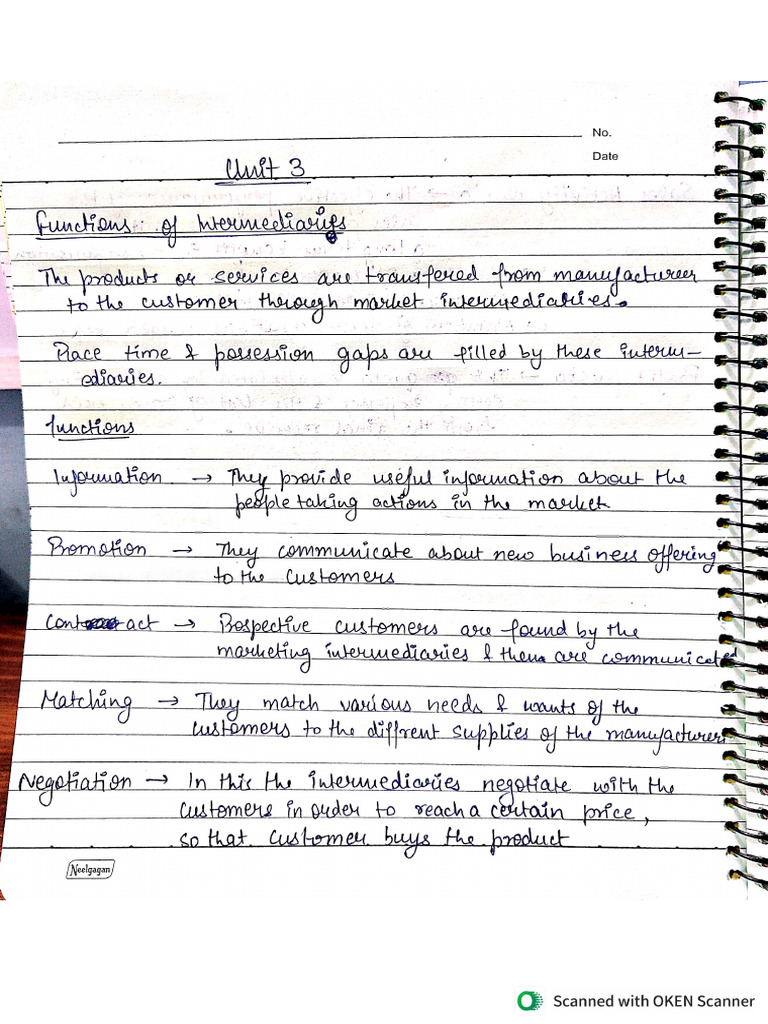 No.
Date
Unit 3
Functions of Intermediaries
The products or services are transfered from manufactureer
to the customer through market intermediaries.
Place time & possession gaps are filled by these interm-
ediaries.
functions
Information → They provide useful information about the
people taking actions in the market
Promotion → They communicate about new business offering
to the customers
Contact → Prospective customers are found by the
marketing intermediaries & them are communicated
Matching → They match various needs & wants of the
customers to the diffrent supplies of the manufacturer
Negotiation → In this the intermediaries negotiate with the
customers in order to reach a certain price,
so that customer buys the product
Neelgagan
Scanned with OKEN Scanner